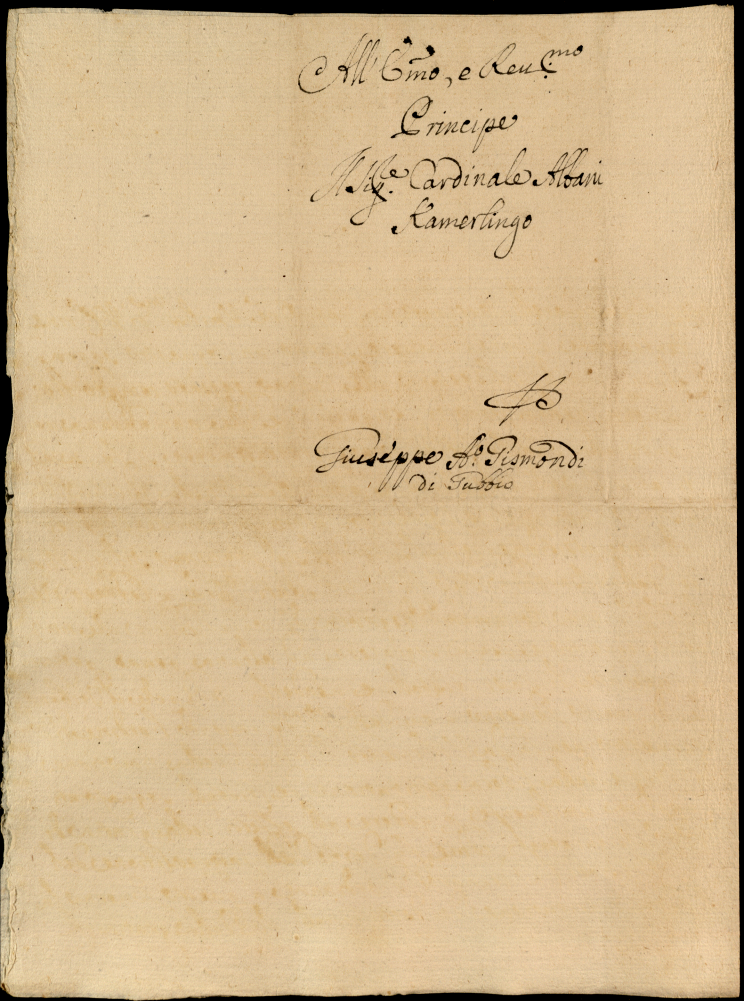 All' Emo, e Reu.mo
Principe
Il Sig.re Cardinale Albani
Kamerlingo
Giuseppe Ab. Gismondi
di Gubbio